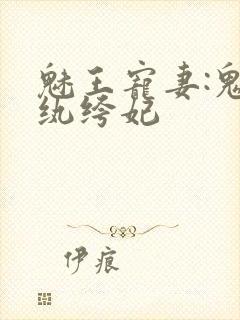 魅王宠妻:鬼
纨绔妃
伊痕